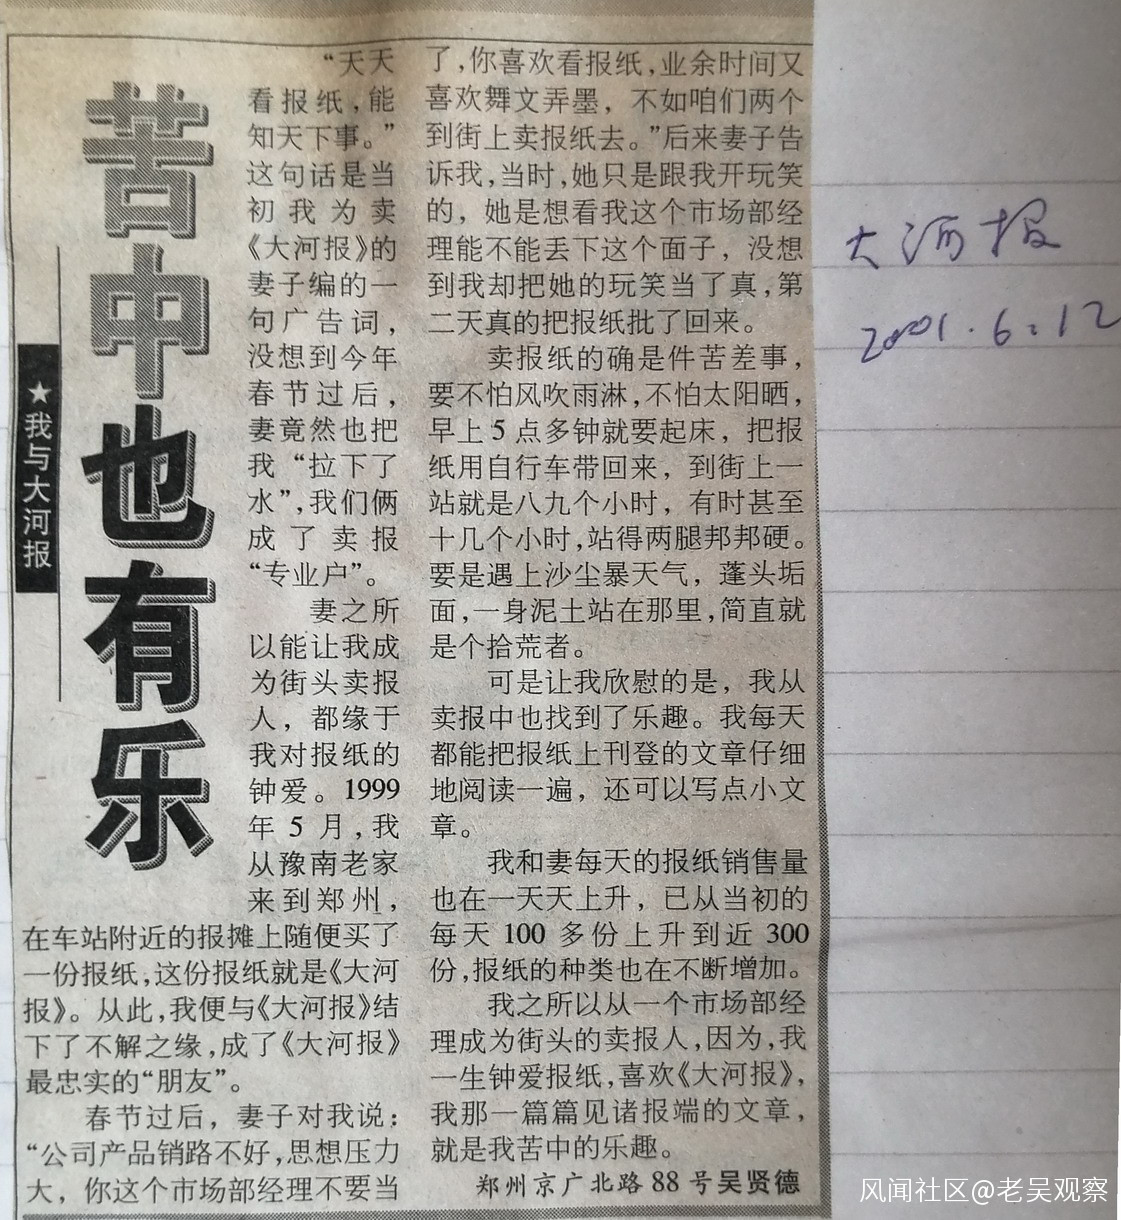 苦中也有乐
★我与大河报
“天天
看报纸,能
知天下事。”
这句话是当
初我为卖
《大河报》的
妻子编的一
句广告词,
没想到今年
春节过后,
妻竟然也把
我“拉下了
水”,我们俩
成了卖报
“专业户”。
妻之所
以能让我成
为街头卖报
人，都缘于
我对报纸的
钟爱。1999
年5月,我
从豫南老家
来到郑州，
在车站附近的报摊上随便买了
一份报纸,这份报纸就是《大河
报》。从此,我便与《大河报》结
下了不解之缘,成了《大河报》
最忠实的“朋友”。
春节过后，妻子对我说：
“公司产品销路不好,思想压力
大，你这个市场部经理不要当
了,你喜欢看报纸,业余时间又
喜欢舞文弄墨，不如咱们两个
到街上卖报纸去。”后来妻子告
诉我,当时,她只是跟我开玩笑
的，她是想看我这个市场部经
理能不能丢下这个面子，没想
到我却把她的玩笑当了真,第
二天真的把报纸批了回来。
卖报纸的确是件苦差事，
要不怕风吹雨淋,不怕太阳晒，
早上5点多钟就要起床，把报
纸用自行车带回来，到街上一
站就是八九个小时，有时甚至
十几个小时,站得两腿邦邦硬。
要是遇上沙尘暴天气，蓬头垢
面,一身泥土站在那里,简直就
是个拾荒者。
可是让我欣慰的是，我从
卖报中也找到了乐趣。我每天
都能把报纸上刊登的文章仔细
地阅读一遍，还可以写点小文
章。
我和妻每天的报纸销售量
也在一天天上升，已从当初的
每天100多份上升到近300
份,报纸的种类也在不断增加。
我之所以从一个市场部经
理成为街头的卖报人,因为,我
一生钟爱报纸,喜欢《大河报》,
我那一篇篇见诸报端的文章，
就是我苦中的乐趣。
郑州京广北路88号吴贤德
大河报
2001.6.12
风闻社区@老吴观察